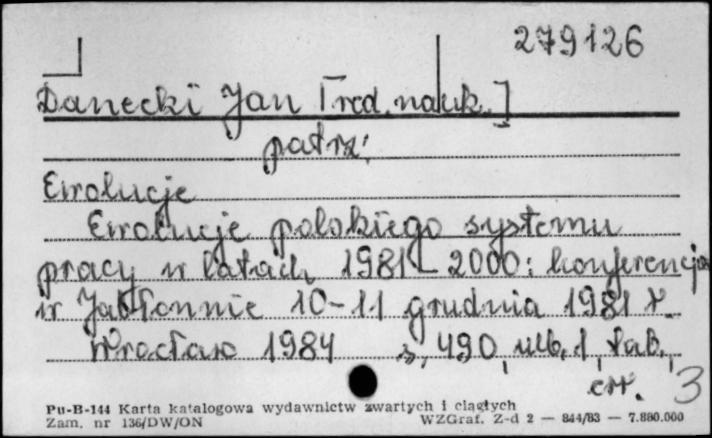 279126
Danecki Jan [red. nauk.]
patrz:
Ewolucje
Ewolucje polskiego systemu
pracy w latach 1981-2000: konferencja
w Jabłonnie 10-11 grudnia 1981 r.
Wrocław 1984 s. 490, nlb. 1, tab.
3
Pu-B-144 Karta katalogowa wydawnictw zwartych i ciągłych
Zam. nr 136/DW/ON WZGraf. Z-d 2 — 844/83 — 7.880.000